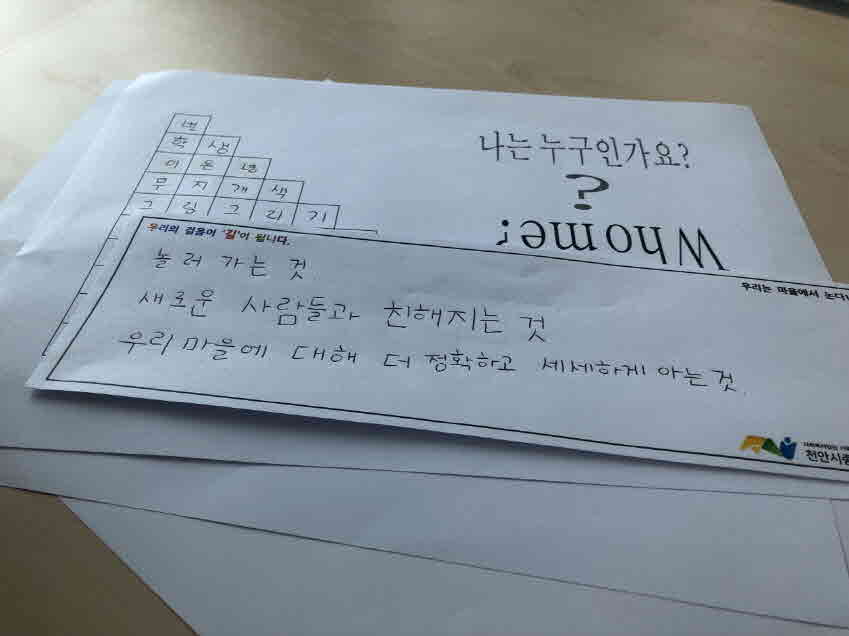 나는 누구인가요?
?
Who me;
번
학생
이은
무지개색
그림그리기
우리의 걸음이 '길'이 됩니다.
우리는 마을에서 논다
놀러 가는 것
새로운 사람들과 친해지는 것
우리 마을에 대해 더 정확하고 세세하게 아는 것.
천안시